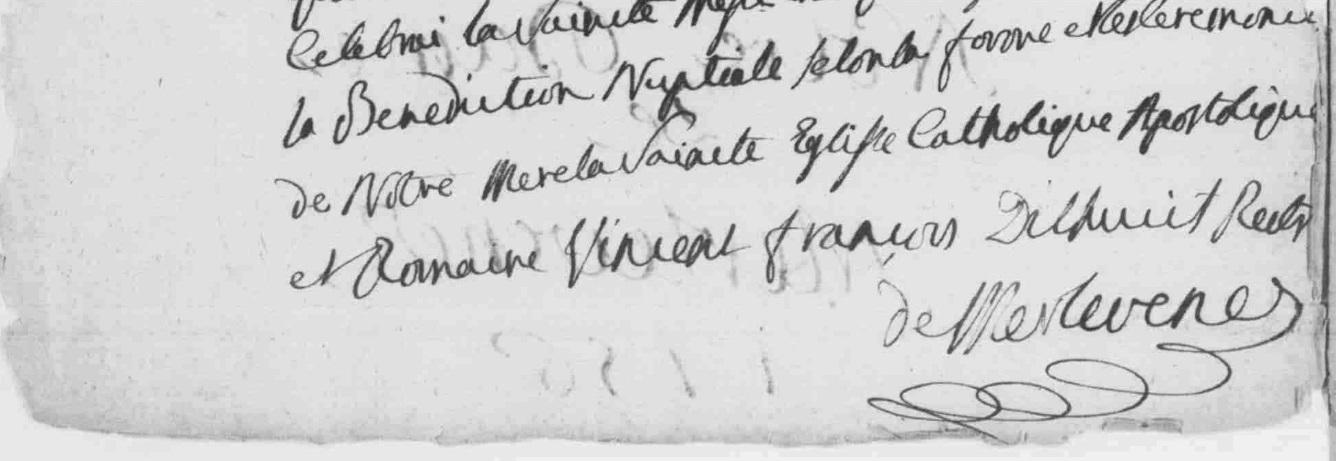 Celebrai la Saincte Messe
la Benediction Nuptiale selon la forme et les Ceremonies
de Notre Mere la Sainte Eglisse Catholique Apostolique
et Romaine Vincent francois Dilhuit Rectr
de Merlevenez